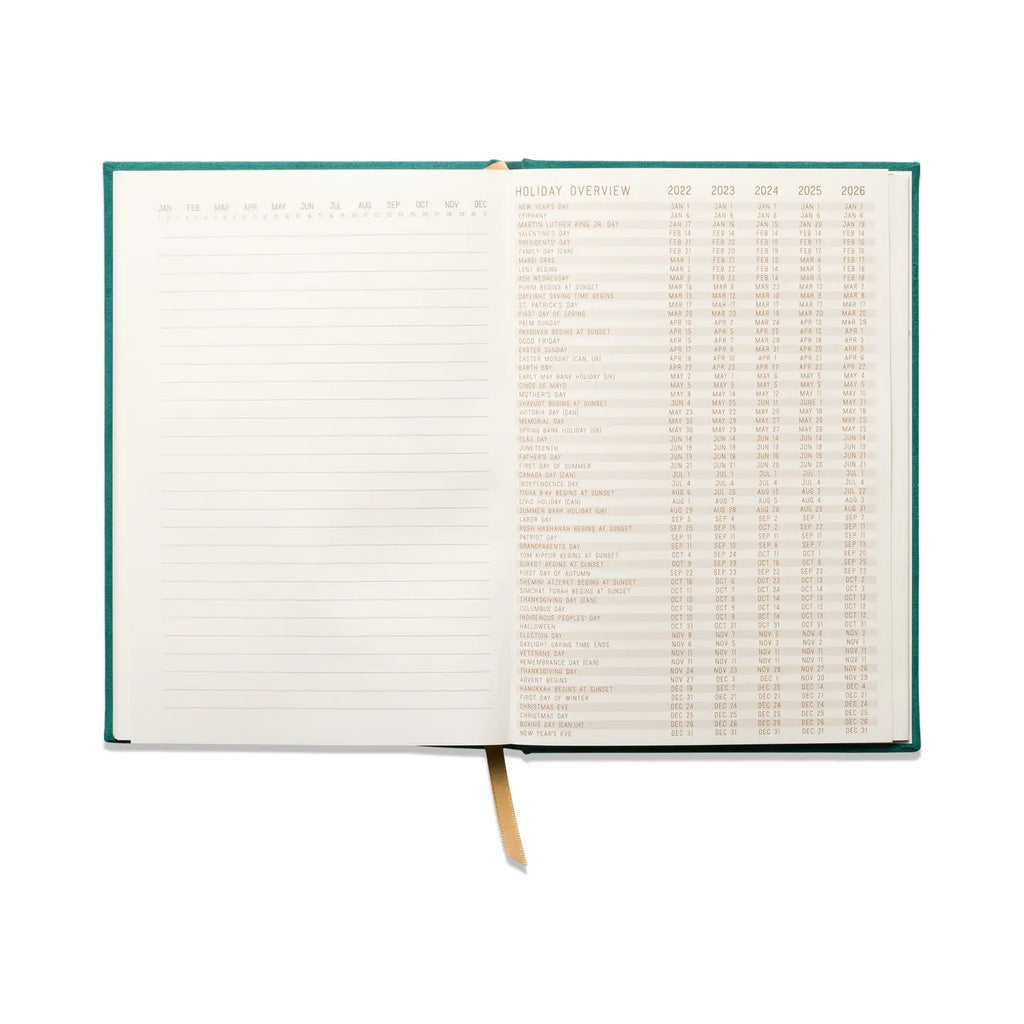 JAN FEB MAR APR MAY JUN JUL AUG SEP OCT NOV DEC
HOLIDAY OVERVIEW 2022 2023 2024 2025 2026
NEW YEAR'S DAY JAN 1 JAN 1 JAN 1 JAN 1 JAN 1
EPIPHANY JAN 6 JAN 6 JAN 6 JAN 6 JAN 6
MARTIN LUTHER KING JR. DAY JAN 17 JAN 16 JAN 15 JAN 20 JAN 19
VALENTINE'S DAY FEB 14 FEB 14 FEB 14 FEB 14 FEB 14
PRESIDENTS' DAY FEB 21 FEB 20 FEB 19 FEB 17 FEB 16
FAMILY DAY (CAN) FEB 21 FEB 20 FEB 19 FEB 17 FEB 16
MARDI GRAS MAR 1 FEB 21 FEB 13 MAR 4 FEB 17
LENT BEGINS MAR 2 FEB 22 FEB 14 MAR 5 FEB 18
ASH WEDNESDAY MAR 2 FEB 22 FEB 14 MAR 5 FEB 18
PURIM BEGINS AT SUNSET MAR 16 MAR 6 MAR 23 MAR 13 MAR 2
DAYLIGHT SAVING TIME BEGINS MAR 13 MAR 12 MAR 10 MAR 9 MAR 8
ST. PATRICK'S DAY MAR 17 MAR 17 MAR 17 MAR 17 MAR 17
FIRST DAY OF SPRING MAR 20 MAR 20 MAR 19 MAR 20 MAR 20
PALM SUNDAY APR 10 APR 2 MAR 24 APR 13 MAR 29
PASSOVER BEGINS AT SUNSET APR 15 APR 5 APR 22 APR 12 APR 1
GOOD FRIDAY APR 15 APR 7 MAR 29 APR 18 APR 3
EASTER SUNDAY APR 17 APR 9 MAR 31 APR 20 APR 5
EASTER MONDAY (CAN, UK) APR 18 APR 10 APR 1 APR 21 APR 6
EARTH DAY APR 22 APR 22 APR 22 APR 22 APR 22
EARLY MAY BANK HOLIDAY (UK) MAY 2 MAY 1 MAY 6 MAY 5 MAY 4
CINCO DE MAYO MAY 5 MAY 5 MAY 5 MAY 5 MAY 5
MOTHER'S DAY MAY 8 MAY 14 MAY 12 MAY 11 MAY 10
SHAVUOT BEGINS AT SUNSET JUN 4 MAY 25 JUN 11 JUNE 1 MAY 21
VICTORIA DAY (CAN) MAY 23 MAY 22 MAY 20 MAY 19 MAY 18
MEMORIAL DAY MAY 30 MAY 29 MAY 27 MAY 26 MAY 25
SPRING BANK HOLIDAY (UK) MAY 30 MAY 29 MAY 27 MAY 26 MAY 25
FLAG DAY JUN 14 JUN 14 JUN 14 JUN 14 JUN 14
JUNETEENTH JUN 19 JUN 19 JUN 19 JUN 19 JUN 19
FATHER'S DAY JUN 19 JUN 18 JUN 16 JUN 15 JUN 21
FIRST DAY OF SUMMER JUN 21 JUN 21 JUN 20 JUN 20 JUN 21
CANADA DAY (CAN) JUL 1 JUL 1 JUL 1 JUL 1 JUL 1
INDEPENDENCE DAY JUL 4 JUL 4 JUL 4 JUL 4 JUL 4
TISHA B'AV BEGINS AT SUNSET AUG 6 JUL 26 AUG 12 AUG 2 JUL 22
CIVIC HOLIDAY (CAN) AUG 1 AUG 7 AUG 5 AUG 4 AUG 3
SUMMER BANK HOLIDAY (UK) AUG 29 AUG 28 AUG 26 AUG 25 AUG 31
LABOR DAY SEP 5 SEP 4 SEP 2 SEP 1 SEP 7
ROSH HASHANAH BEGINS AT SUNSET SEP 25 SEP 15 OCT 2 SEP 22 SEP 11
PATRIOT DAY SEP 11 SEP 11 SEP 11 SEP 11 SEP 11
GRANDPARENTS DAY SEP 11 SEP 10 SEP 8 SEP 7 SEP 13
YOM KIPPUR BEGINS AT SUNSET OCT 4 SEP 24 OCT 11 OCT 1 SEP 20
SUKKOT BEGINS AT SUNSET OCT 9 SEP 29 OCT 16 OCT 6 SEP 25
FIRST DAY OF AUTUMN SEP 22 SEP 23 SEP 22 SEP 22 SEP 22
SHEMINI ATZERET BEGINS AT SUNSET OCT 16 OCT 6 OCT 23 OCT 13 OCT 2
SIMCHAT TORAH BEGINS AT SUNSET OCT 17 OCT 7 OCT 24 OCT 14 OCT 3
THANKSGIVING DAY (CAN) OCT 10 OCT 9 OCT 14 OCT 13 OCT 12
COLUMBUS DAY OCT 10 OCT 9 OCT 14 OCT 13 OCT 12
INDIGENOUS PEOPLES' DAY OCT 10 OCT 9 OCT 14 OCT 13 OCT 12
HALLOWEEN OCT 31 OCT 31 OCT 31 OCT 31 OCT 31
ELECTION DAY NOV 8 NOV 7 NOV 5 NOV 4 NOV 3
DAYLIGHT SAVING TIME ENDS NOV 6 NOV 5 NOV 3 NOV 2 NOV 1
VETERANS DAY NOV 11 NOV 11 NOV 11 NOV 11 NOV 11
REMEMBRANCE DAY (CAN) NOV 11 NOV 11 NOV 11 NOV 11 NOV 11
THANKSGIVING DAY NOV 24 NOV 23 NOV 28 NOV 27 NOV 26
ADVENT BEGINS NOV 27 DEC 3 DEC 1 NOV 30 NOV 29
HANUKKAH BEGINS AT SUNSET DEC 18 DEC 7 DEC 25 DEC 14 DEC 4
FIRST DAY OF WINTER DEC 21 DEC 21 DEC 21 DEC 21 DEC 21
CHRISTMAS EVE DEC 24 DEC 24 DEC 24 DEC 24 DEC 24
CHRISTMAS DAY DEC 25 DEC 25 DEC 25 DEC 25 DEC 25
BOXING DAY (CAN,UK) DEC 26 DEC 26 DEC 26 DEC 26 DEC 26
NEW YEAR'S EVE DEC 31 DEC 31 DEC 31 DEC 31 DEC 31